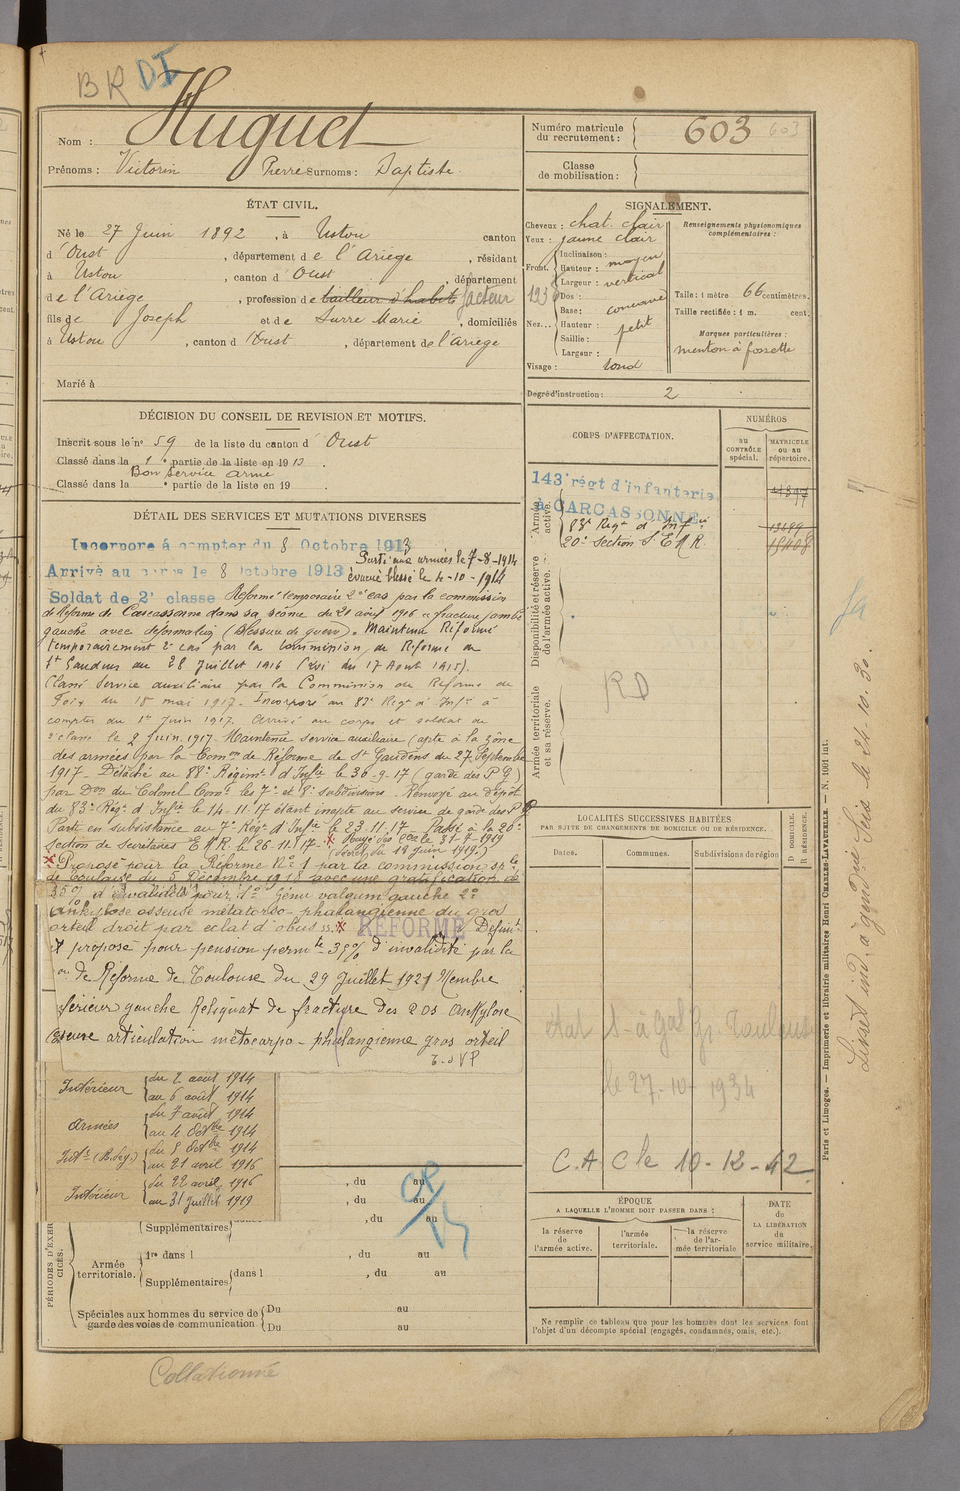 BR DI
Huguet
Nom :
Prénoms : Victorin Pierre Surnoms : Baptiste
ÉTAT CIVIL.
Né le 27 Juin 1892, à Ustou canton
d'Oust, département de l'Ariège, résidant
à Ustou, canton d'Oust, département
de l'Ariège, profession de tailleur d'habits facteur
fils de Joseph et de Surre Marie, domiciliés
à Ustou, canton d'Oust, département de l'Ariège
Marié à
DÉCISION DU CONSEIL DE REVISION ET MOTIFS.
Inscrit sous le n° 59 de la liste du canton d'Oust
Classé dans la 1e partie de la liste en 1913.
Bon service armé
Classé dans la e partie de la liste en 19 .
DÉTAIL DES SERVICES ET MUTATIONS DIVERSES
Incorporé à compter du 8 Octobre 1913
Parti aux armées le 7-8-1914
Arrivé au corps le 8 Octobre 1913
évacué blessé le 4-10-1914
Soldat de 2e classe Réformé temporaire 2e cas par la commission
de Réforme de Carcassonne dans sa séance du 21 août 1916 « fracture jambe
gauche avec déformation (blessure de guerre). Maintenu Réformé
temporairement 2e cas par la Commission de Réforme de
St Gaudens du 28 Juillet 1916 (Loi du 17 Aout 1915).
Classé Service auxiliaire par la Commission de Réforme de
Foix du 18 mai 1917. Incorporé au 83e Regt d'Inf'ie à
compter du 1er Juin 1917. Arrivé au corps et soldat de
2e classe le 2 Juin 1917. Maintenu service auxiliaire (apte à la zône
des armées) par la Comon de Réforme de St Gaudens du 27 Septembre
1917. Détaché au 88e Régimt d'Inf'ie le 30-9-17 (garde des P G)
par Don du Colonel Comt les 7e et 8e subdivisions. Renvoyé au Dépôt
du 83e Régt d'Infie le 14-11-17 étant inapte au service de garde des P G
Passé en subsistance au 7e Régt d'Infie le 23.11.17. Passé à la 20e
Section de Secrétaires E M R. le 26.11.17.
Proposé pour la Réforme N° 1 par la commission sple
de Toulouse du 5 Décembre 1918 avec une gratification de
35% d'invalidité pour 1° Génu valgum gauche 2°
Ankylose osseuse métatarso-phalangienne du gros
orteil droit par éclat d'obus
RÉFORMÉ
Définit
t proposé pour pension permte 35% d'invalidité par la
on de Réforme de Toulouse du 29 Juillet 1921 Membre
férieur gauche Reliquat de fracture des 2 os Ankylose
osseuse articulation métacarpo-phalangienne gros orteil
T.S.V.P
Intérieur du 2 août 1914
au 6 août 1914
Armées du 7 août 1914
au 4 Octbre 1914
Intr du 5 Octbre 1914
au 21 avril 1916
Intérieur du 22 avril 1916
au 31 Juillet 1919
, du au
, du au
Supplémentaires , du au
PÉRIODES D'EXERCICES.
Armée territoriale.
1re dans l , du au
Supplémentaires dans l , du au
Spéciales aux hommes du service de garde des voies de communication
Du au
Du au
Collationné
Numéro matricule du recrutement : 603 603
Classe de mobilisation :
SIGNALEMENT.
Cheveux : chat. clair
Yeux : jaune clair
Front. Inclinaison :
Hauteur : moyen
Largeur : vertical
Nez... Dos :
Base : concave
Hauteur : petit
Saillie :
Largeur :
Visage : rond
Renseignements physionomiques complémentaires :
Taille : 1 mètre 66 centimètres.
Taille rectifiée : 1 m. cent.
Marques particulières :
menton à fossette
Degré d'instruction : 2
CORPS D'AFFECTATION.
NUMÉROS
au CONTRÔLE spécial.
MATRICULE ou au répertoire.
Armée active.
143e régt d'infanterie
à CARCASSONNE
83e Regt d'Infie
20e Section S.E.M.R.
Disponibilité et réserve de l'armée active.
Armée territoriale et sa réserve.
RD
LOCALITÉS SUCCESSIVES HABITÉES
PAR SUITE DE CHANGEMENTS DE DOMICILE OU DE RÉSIDENCE.
Dates. Communes. Subdivisions de région
D DOMICILE.
R RÉSIDENCE.
le 27-10-1934
C.A C le 10-12-42
ÉPOQUE
A LAQUELLE L'HOMME DOIT PASSER DANS :
la réserve de l'armée active.
l'armée territoriale.
la réserve de l'armée territoriale
DATE de LA LIBÉRATION du service militaire.
Ne remplir ce tableau que pour les hommes dont les services font
l'objet d'un décompte spécial (engagés, condamnés, omis, etc.).
Paris et Limoges. — Imprimerie et librairie militaires Henri CHARLES-LAVAUZELLE. — N. 1091 int.